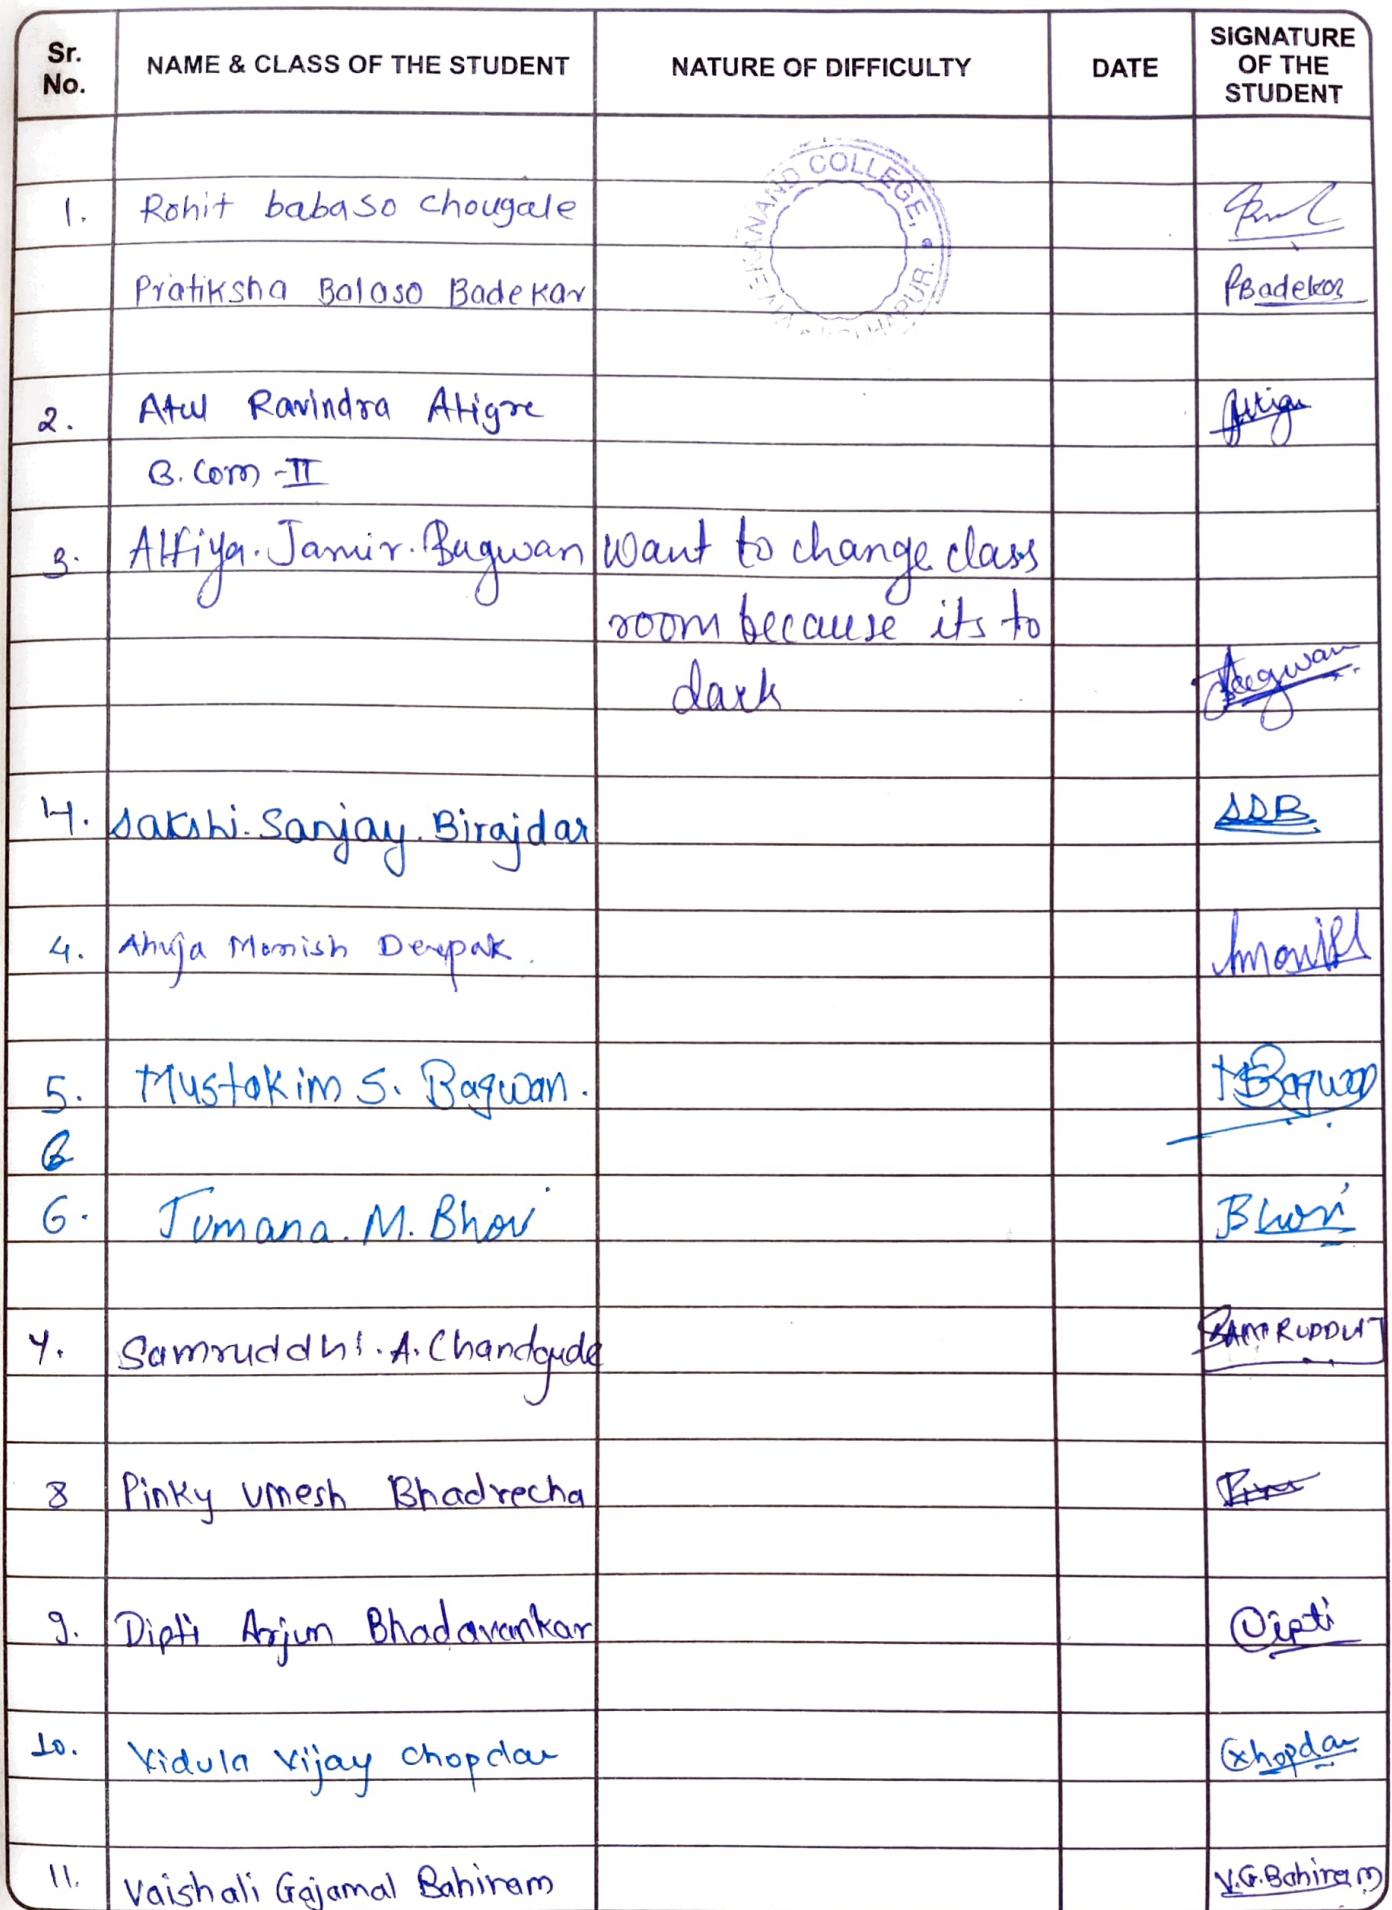 Sr. No.
NAME & CLASS OF THE STUDENT
NATURE OF DIFFICULTY
DATE
SIGNATURE OF THE STUDENT
VIVEKANAND COLLEGE, KOLHAPUR.
1. Rohit babaso chougale
Pratiksha Balaso Badekar PBadekar
2. Atul Ravindra Atigre Atigre
B.Com -II
3. Alfiya. Jamir. Bagwan Want to change class
room because its to
dark Bagwan
4. Sakshi. Sanjay. Birajdar SSB
4. Ahuja Monish Deepak.
5. Mustakim S. Bagwan. MSBagwan
6
6. Jumana. M. Bhori Bhori
7. Samruddhi. A. Chandgude SAMRUDDHI
8 Pinky Umesh Bhadrecha
9. Dipti Arjun Bhadavankar Dipti
10. Vidula Vijay Chopdar Chopdar
11. Vaishali Gajamal Bahiram V.G.Bahiram